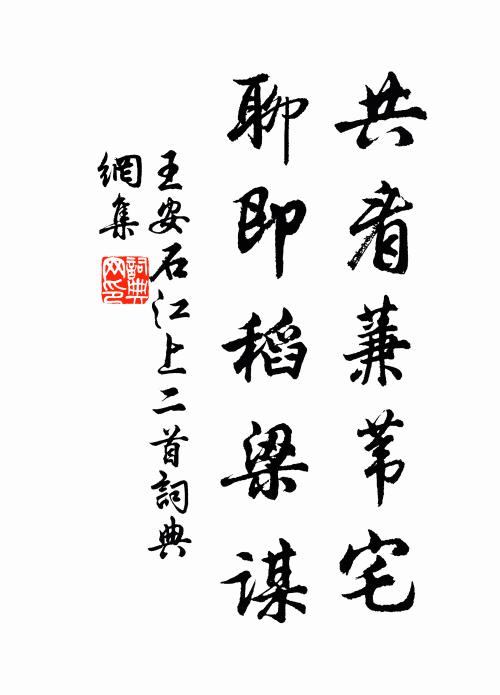 共看蒹苇宅
聊即稻梁谋
王安石江上二首詞典
網集
詞典
网印